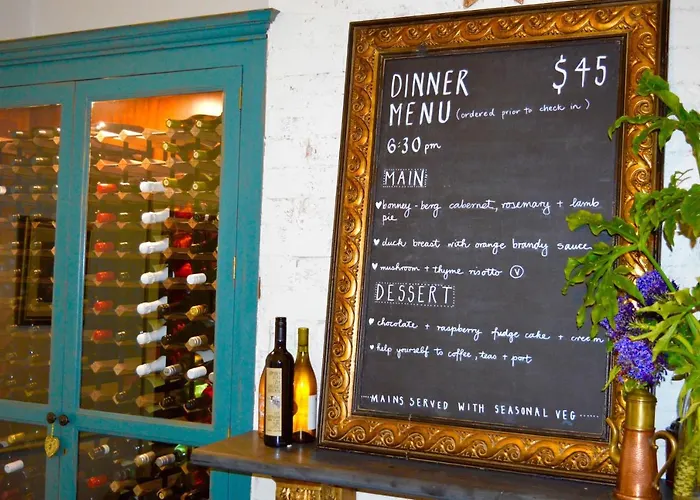 DINNER $45
MENU (ordered prior to check in)
6:30 pm
MAIN
♥ bonney-berg cabernet, rosemary + lamb
pie
♥ duck breast with orange brandy sauce
♥ mushroom + thyme risotto Ⓥ
DESSERT
♥ chocolate + raspberry fudge cake + cream
♥ help yourself to coffee, teas + port
....MAINS SERVED WITH SEASONAL VEG......